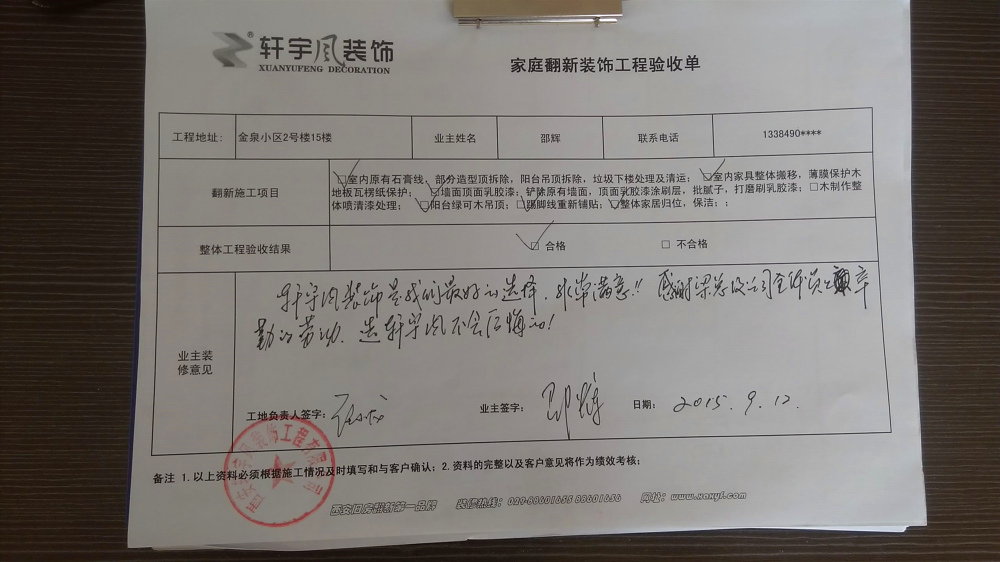 轩宇风装饰
XUANYUFENG DECORATION
家庭翻新装饰工程验收单
工程地址: 金泉小区2号楼15楼 业主姓名 邵辉 联系电话 1338490****
翻新施工项目
□室内原有石膏线，部分造型顶拆除，阳台吊顶拆除，垃圾下楼处理及清运；□室内家具整体搬移，薄膜保护木
地板瓦楞纸保护；□墙面顶面乳胶漆；铲除原有墙面，顶面乳胶漆涂刷层，批腻子，打磨刷乳胶漆；□木制作整
体喷清漆处理；□阳台绿可木吊顶；□踢脚线重新铺贴；□整体家居归位，保洁；；
整体工程验收结果 □ 合格 □ 不合格
业主装
修意见
轩宇风装饰是我们最好的选择，非常满意!! 感谢梁总及公司全体员工辛
勤的劳动，选轩宇风不会后悔的!
工地负责人签字: 业主签字: 邵辉 日期: 2015.9.12.
备注 1.以上资料必须根据施工情况及时填写和与客户确认；2.资料的完整以及客户意见将作为绩效考核；
西安旧房翻新第一品牌 装修热线：029-88601655 88601656 网址：www.xaxyf.com